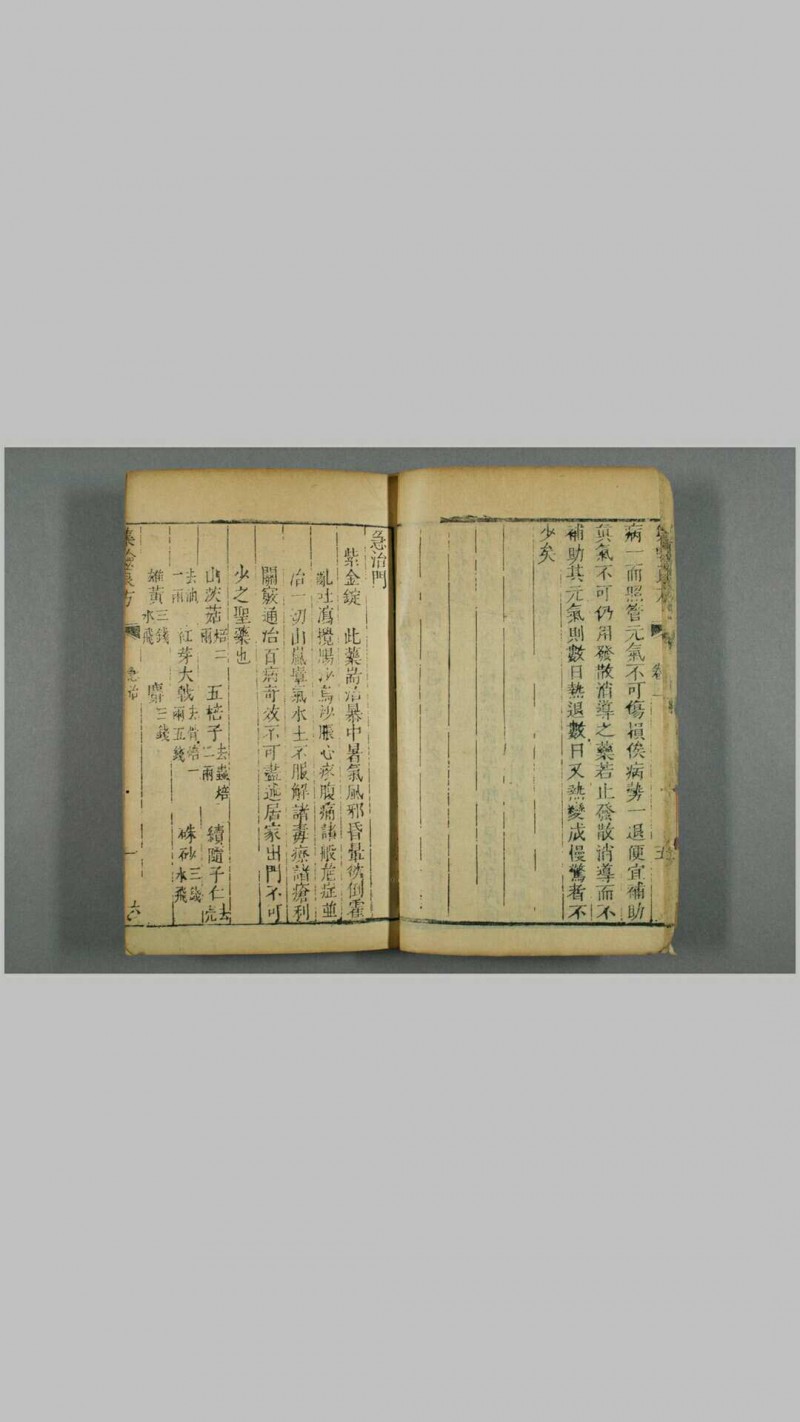 病一面照管元氣不可傷損俟病勢一退便宜補助
眞氣不可仍用發散消導之藥若止發散消導而不
補助其元氣則數日熱退數日又熱變成慢驚者不
少矣
卷一
五
急治門
紫金錠 此藥耑治暴中暑氣風邪昏暈欲倒霍
亂吐瀉攪腸沙烏沙脹心疼腹痛諸般危症並
治一切山嵐瘴氣水土不服解諸毒療諸瘡利
關竅通治百病奇效不可盡述居家出門不可
少之聖藥也
山茨菇焙二兩 五棓子去蟲焙二兩 續隨子仁去壳
去油一兩 紅芽大戟去骨焙一兩五錢 硃砂三錢水飛
雄黃三錢水飛 麝三錢
良方
急治
六